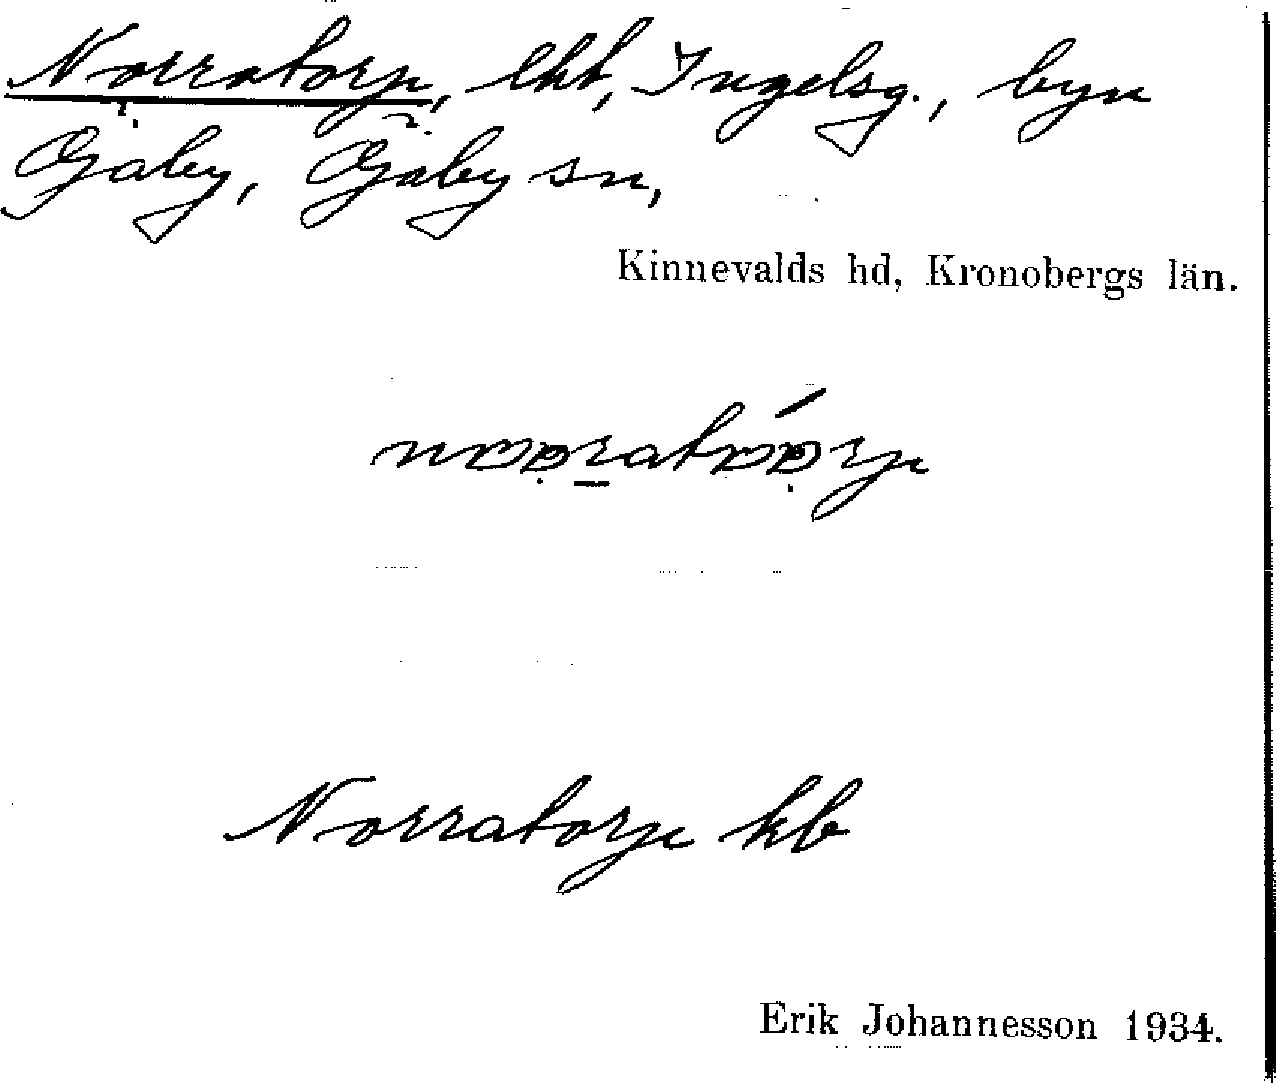 Norratorp, lht, Ingelsg., byn
Gäby, Gäby sn,
Kinnevalds hd, Kronobergs län.
Norratorp kb
Erik Johannesson 1934.